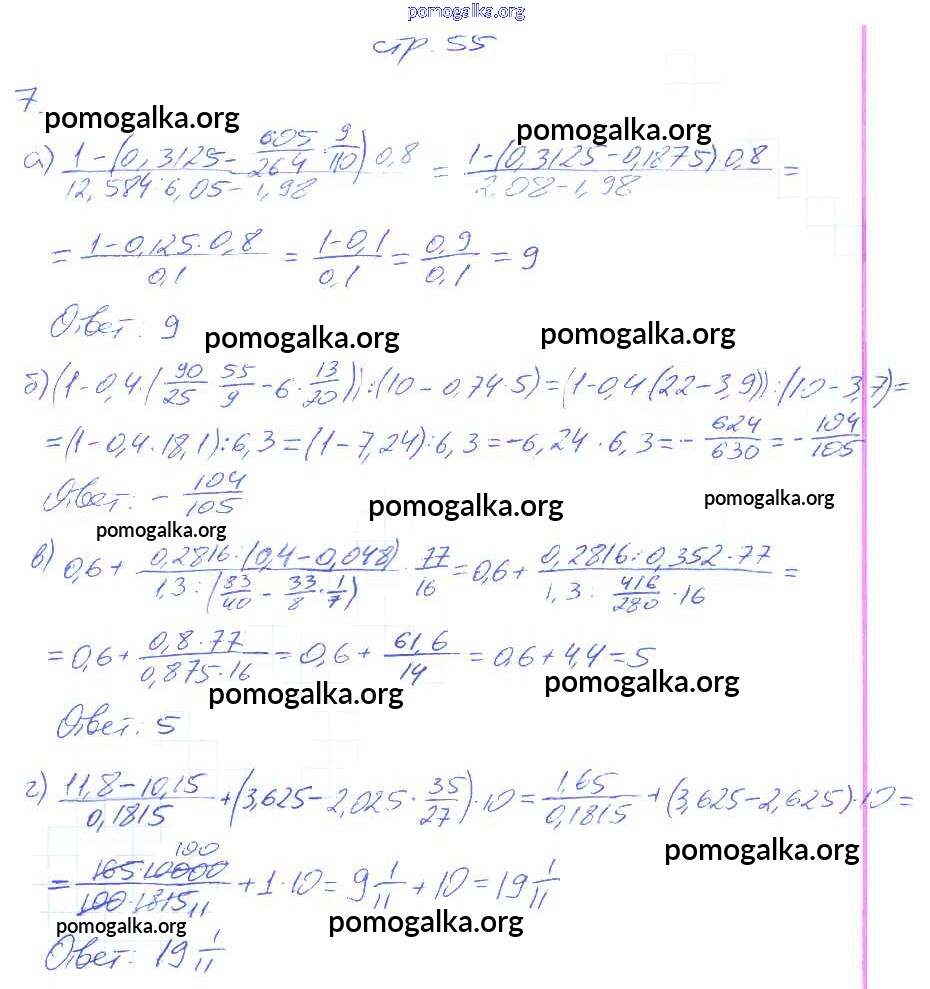 pomogalka.org
стр. 55
7.
pomogalka.org pomogalka.org
а) (1-(0,3125-605/264:9/10)·0,8)/(12,584:6,05-1,98) = (1-(0,3125-0,1875)·0,8)/(2,08-1,98) =
= (1-0,125·0,8)/0,1 = (1-0,1)/0,1 = 0,9/0,1 = 9
Ответ: 9
pomogalka.org pomogalka.org
б) (1-0,4·(90/25·55/9-6·13/20)):(10-0,74·5)=(1-0,4(22-3,9)):(10-3,7)=
=(1-0,4·18,1):6,3=(1-7,24):6,3=-6,24:6,3=-624/630=-104/105
Ответ: -104/105
pomogalka.org pomogalka.org
pomogalka.org
в) 0,6+(0,2816:(0,4-0,048))/(1,3:(83/40-33/8·1/7))·77/16=0,6+(0,2816:0,352·77)/(1,3:416/280·16)=
=0,6+(0,8·77)/(0,875·16)=0,6+61,6/14=0,6+4,4=5
pomogalka.org pomogalka.org
Ответ: 5
г) (11,8-10,15)/0,1815+(3,625-2,025·35/27)·10=1,65/0,1815+(3,625-2,625)·10=
pomogalka.org
100
=(165·10000)/(100·1815 11)+1·10=9 1/11+10=19 1/11
pomogalka.org pomogalka.org
Ответ: 19 1/11